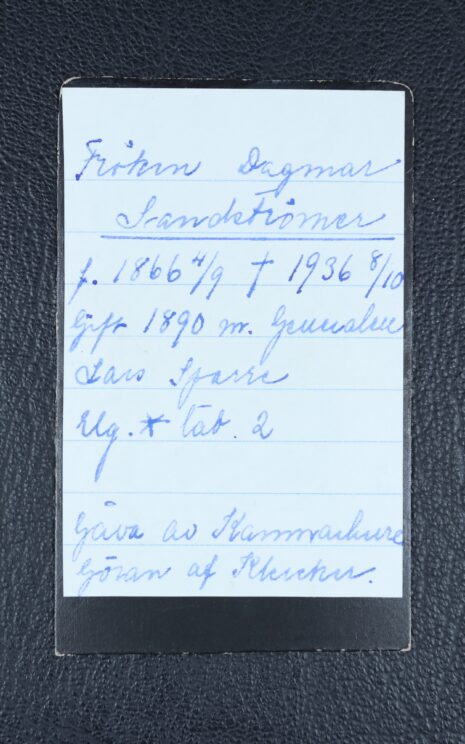 Fröken Dagmar
Sandströmer
f. 1866 4/9 † 1936 8/10
Gift 1890 m. Generalen
Lars Sparre
Elg. * tab. 2
Gåva av Kammarherre
Göran af Klercker.